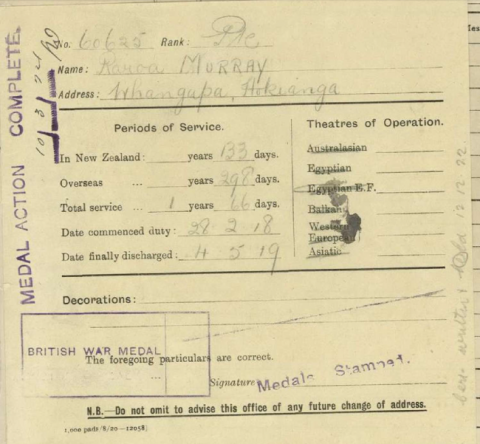 MEDAL ACTION COMPLETE.
10/3/24
No. 60625 Rank: Pte
Name: Karoa MURRAY
Address: Whangapa, Hokianga
Periods of Service.
In New Zealand: years 133 days.
Overseas ... years 298 days.
Total service ... 1 years 66 days.
Date commenced duty: 28 2 18
Date finally discharged: 4 5 19
Theatres of Operation.
Australasian
Egyptian
Egyptian E.F.
Balkan
Western European
Asiatic
Decorations:
BRITISH WAR MEDAL
The foregoing particulars are correct.
Signature
Medals Stamped.
N.B.—Do not omit to advise this office of any future change of address.
1,000 pads/8/20—12058]
written 12.12.22